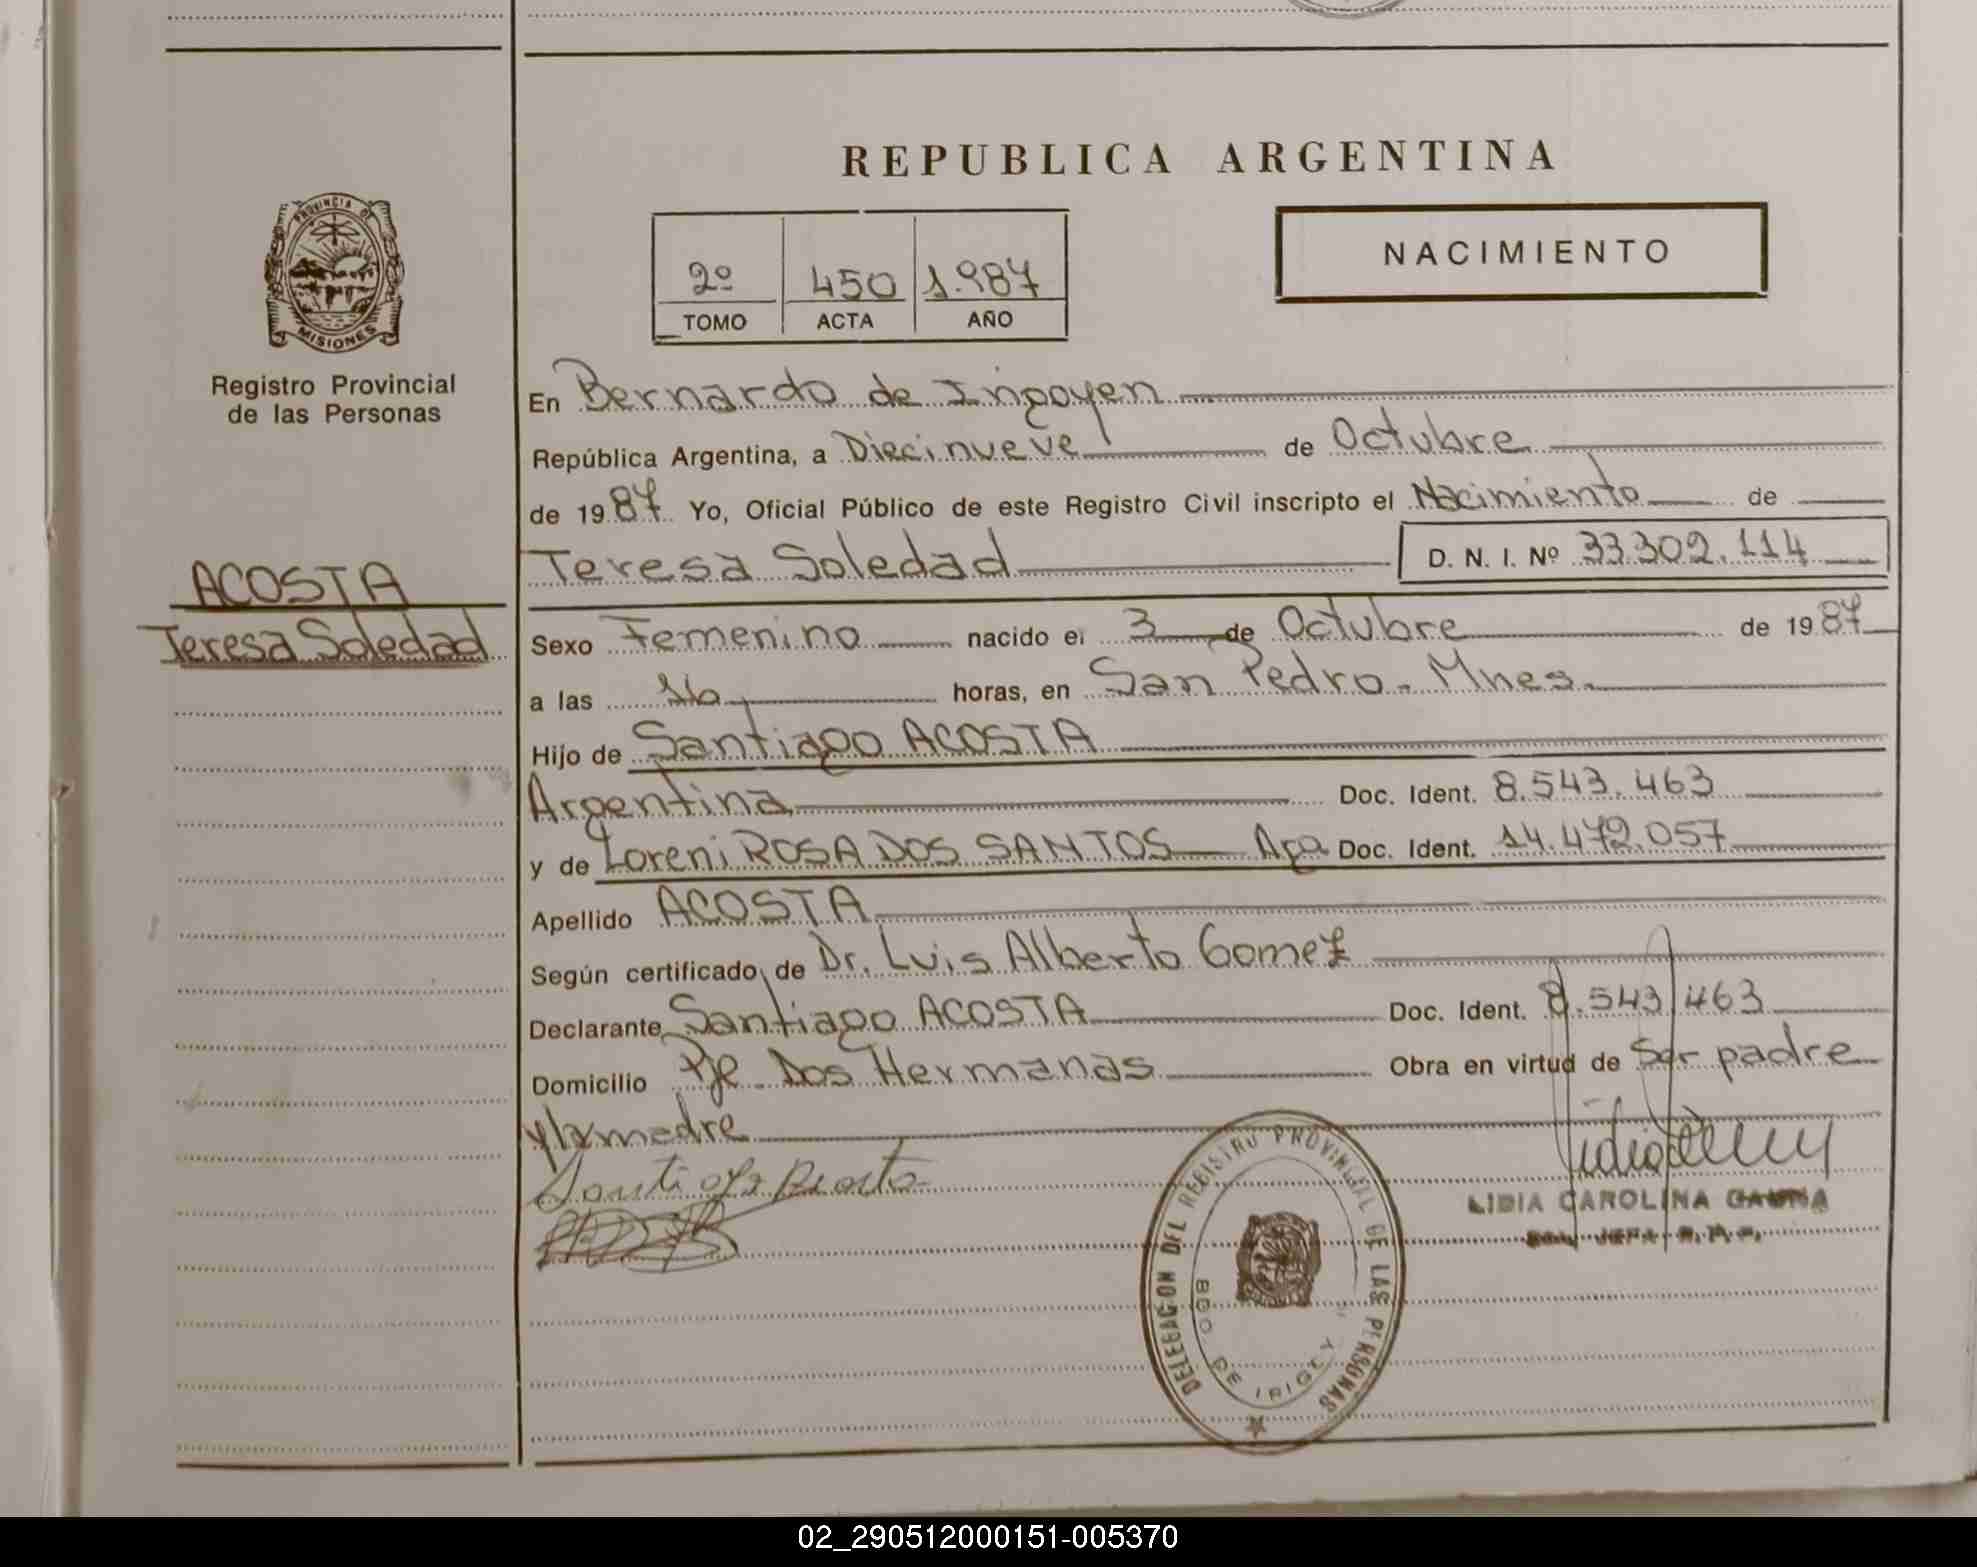 REPUBLICA ARGENTINA
PROVINCIA DE
MISIONES
Registro Provincial
de las Personas
2º 450 1.987
TOMO ACTA AÑO
NACIMIENTO
En Bernardo de Irigoyen
República Argentina, a Diecinueve de Octubre
de 1987 Yo, Oficial Público de este Registro Civil inscripto el Nacimiento de
ACOSTA
Teresa Soledad
Teresa Soledad D. N. I. Nº 33.302.114
Sexo Femenino nacido el 3 de Octubre de 1987
a las horas, en San Pedro - Mnes.
Hijo de Santiago ACOSTA
Argentina Doc. Ident. 8.543.463
y de Loreni ROSA DOS SANTOS Arga Doc. Ident. 14.472.057
Apellido ACOSTA
Según certificado de Dr. Luis Alberto Gomez
Declarante Santiago ACOSTA Doc. Ident. 8.543.463
Domicilio Pje Dos Hermanas Obra en virtud de Ser padre
y la madre
Santiago Acosta
LIDIA CAROLINA
DELEGACION DEL REGISTRO PROVINCIAL DE LAS PERSONAS
BDO. DE IRIGOYEN
02_290512000151-005370